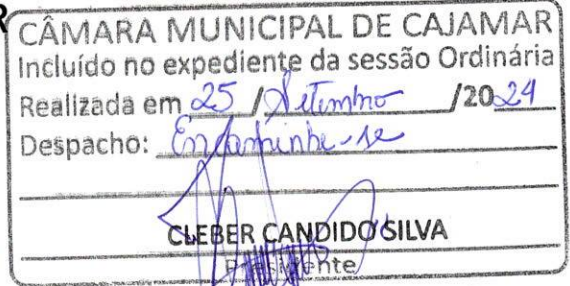 R
CÂMARA MUNICIPAL DE CAJAMAR
Incluído no expediente da sessão Ordinária
Realizada em 25 / Setembro /2024
Despacho: Encaminhe-se
CLEBER CANDIDO SILVA
Presidente